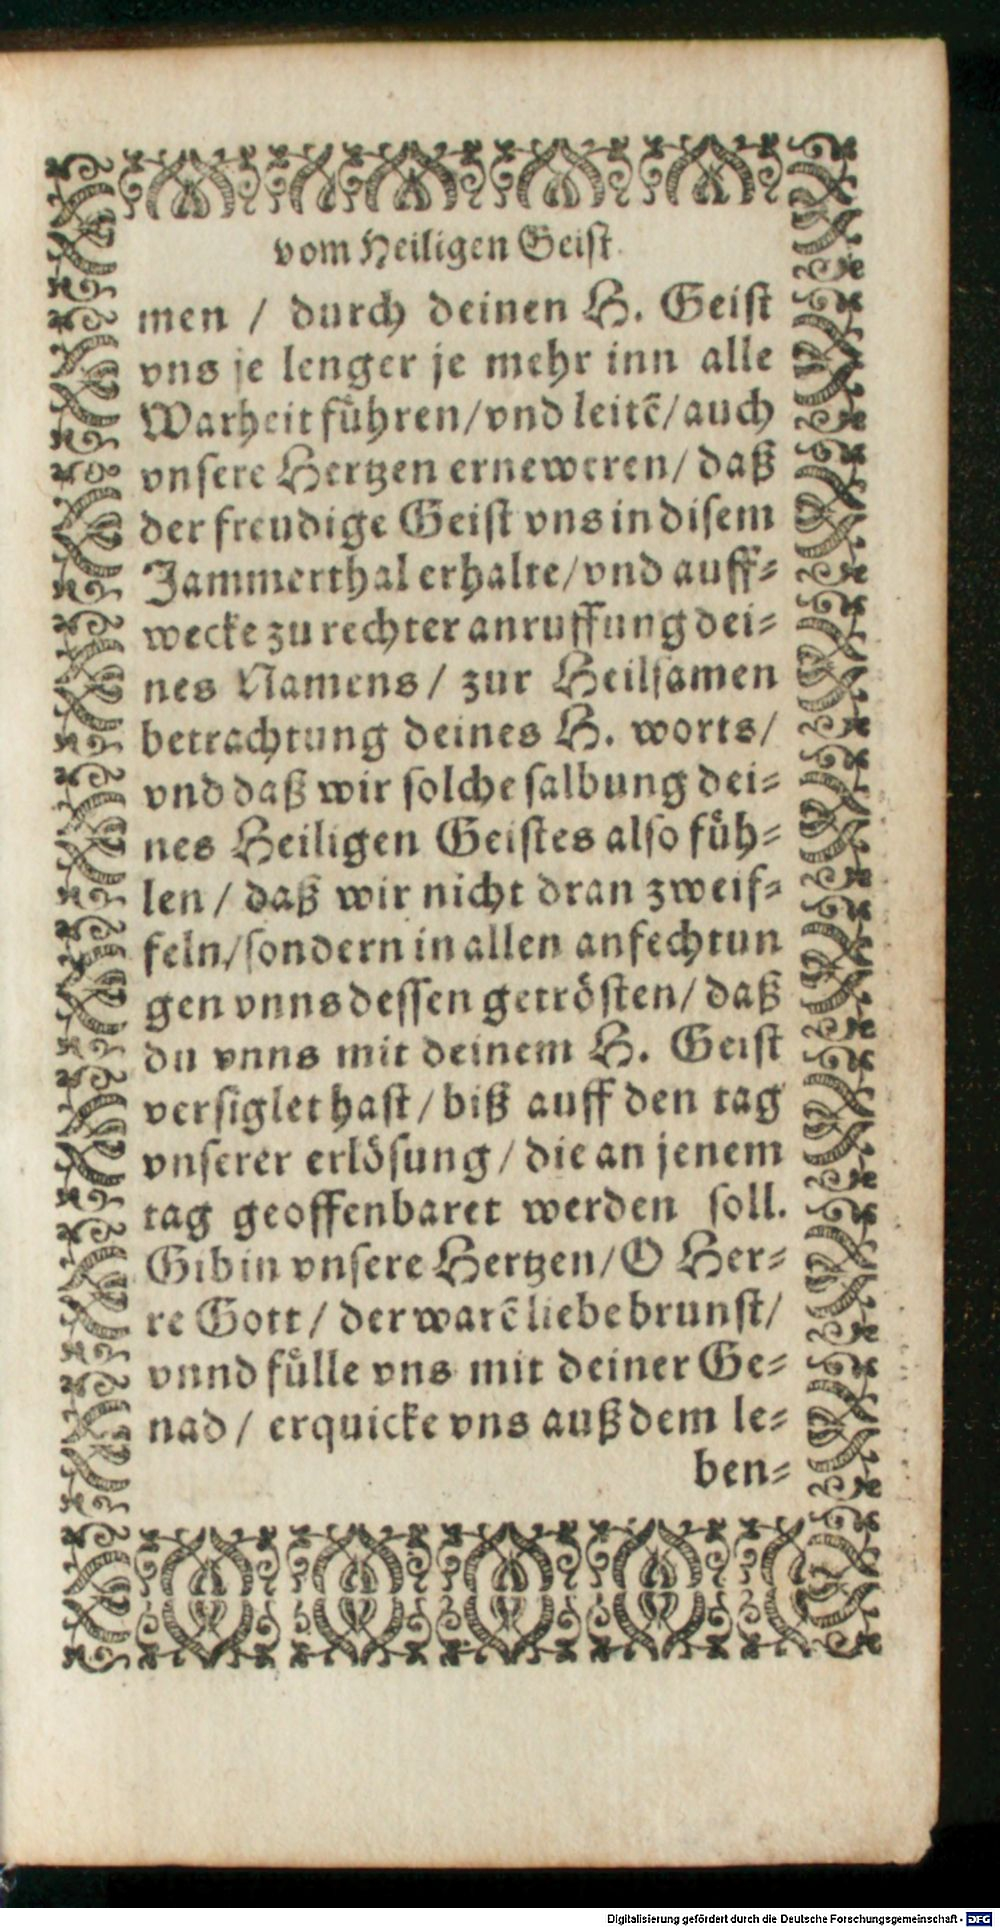 vom Heiligen Geist.
men / durch deinen H. Geist
vns je lenger je mehr inn alle
Warheit führen/vnd leitē/auch
vnsere Hertzen erneweren/ daß
der freudige Geist vns in disem
Jammerthal erhalte/vnd auff-
wecke zu rechter anruffung dei-
nes Namens / zur Heilsamen
betrachtung deines H. worts/
vnd daß wir solche salbung dei-
nes Heiligen Geistes also füh-
len / daß wir nicht dran zweif-
feln/sondern in allen anfechtun
gen vnns dessen getrösten/ daß
du vnns mit deinem H. Geist
versiglet hast / biß auff den tag
vnserer erlösung / die an jenem
tag geoffenbaret werden soll.
Gib in vnsere Hertzen/O Her-
re Gott / der warē liebe brunst/
vnnd fülle vns mit deiner Ge-
nad / erquicke vns auß dem le-
ben-
Digitalisierung gefördert durch die Deutsche Forschungsgemeinschaft - DFG